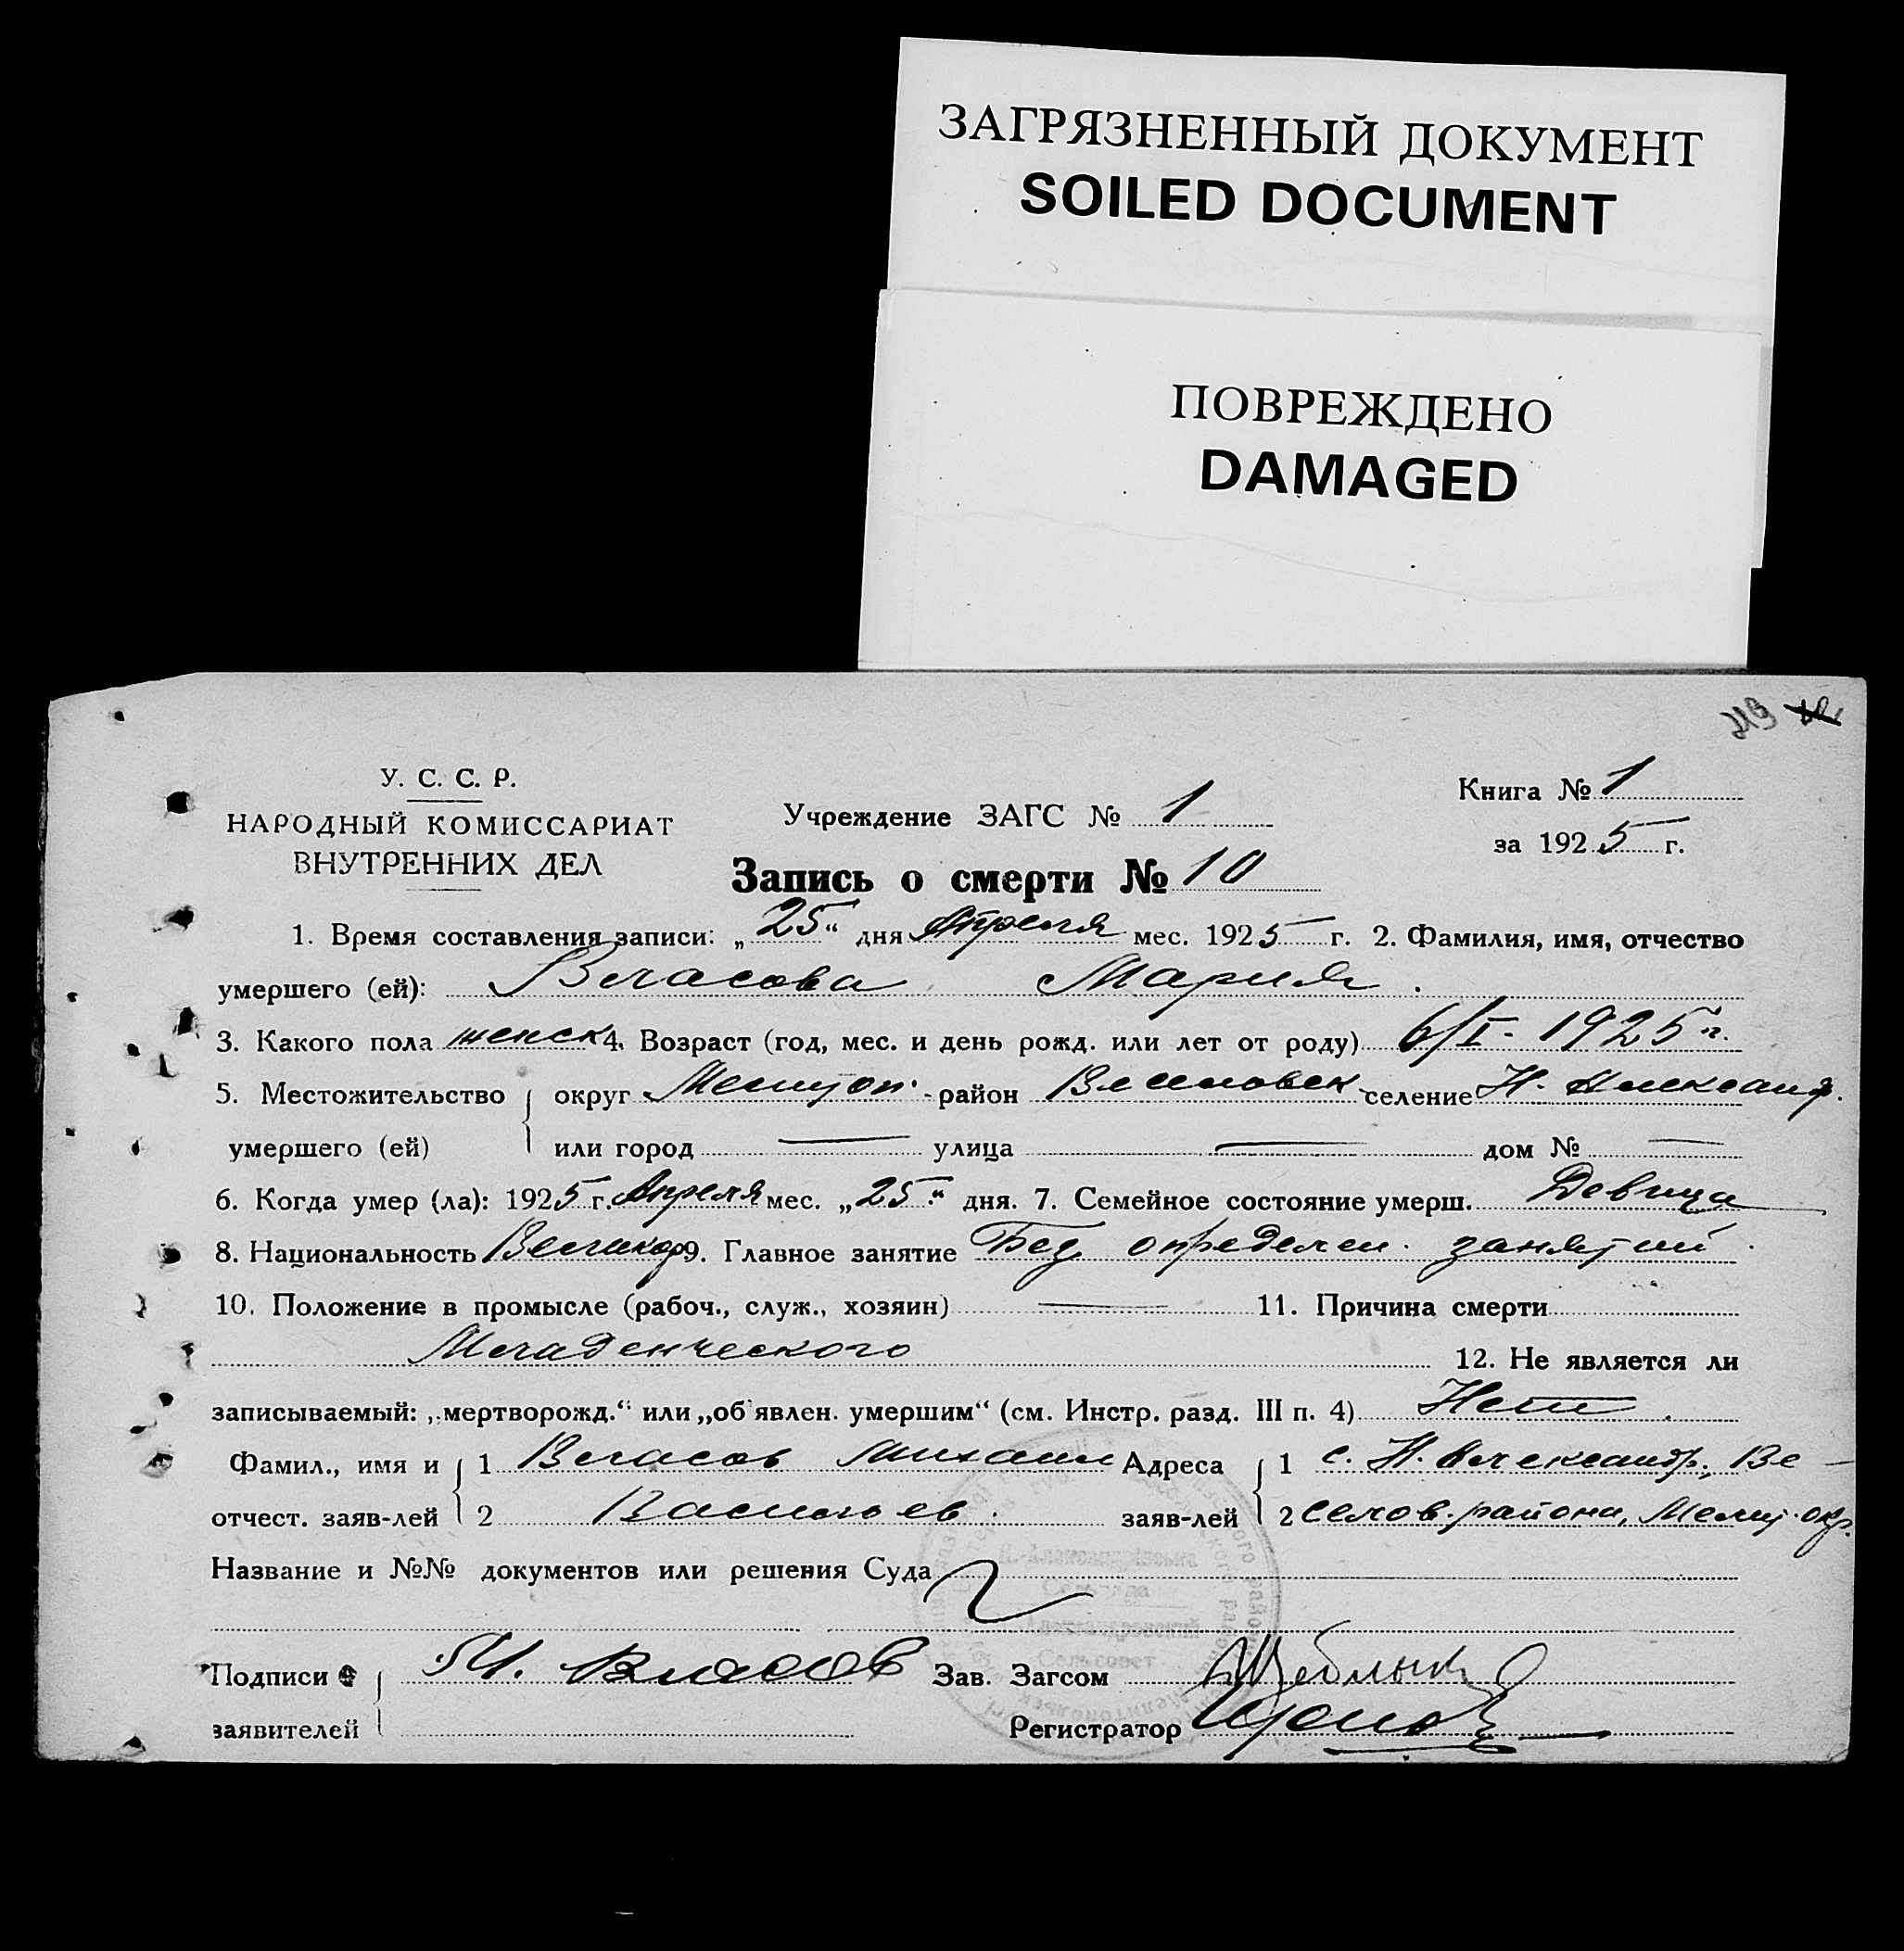 ЗАГРЯЗНЕННЫЙ ДОКУМЕНТ
SOILED DOCUMENT
ПОВРЕЖДЕНО
DAMAGED
У. С. С. Р.
НАРОДНЫЙ КОМИССАРИАТ
ВНУТРЕННИХ ДЕЛ
Учреждение ЗАГС № 1
Книга № 1
за 1925 г.
Запись о смерти № 10
1. Время составления записи: „25“ дня Апреля мес. 1925 г. 2. Фамилия, имя, отчество
умершего (ей): Власова Мария.
3. Какого пола женск 4. Возраст (год, мес. и день рожд. или лет от роду) 6/I - 1925 г.
5. Местожительство округ Мелитоп. район Веселовск селение Н. Александр.
умершего (ей) или город — улица — дом № —
6. Когда умер (ла): 1925 г. Апреля мес. „25“ дня. 7. Семейное состояние умерш. Девица
8. Национальность Великор 9. Главное занятие Без определен. занятий.
10. Положение в промысле (рабоч., служ., хозяин) — 11. Причина смерти
Младенческого 12. Не является ли
записываемый: „мертворожд.“ или „об'явлен. умершим“ (см. Инстр. разд. III п. 4) Нет.
Фамил., имя и 1 Власов Михаил Адреса 1 с. Н. Александр., Ве-
отчест. заяв-лей 2 Васильев. заяв-лей 2 селов. района, Мелит. окр.
Название и №№ документов или решения Суда
Подписи М. Власов Зав. Загсом
заявителей Регистратор